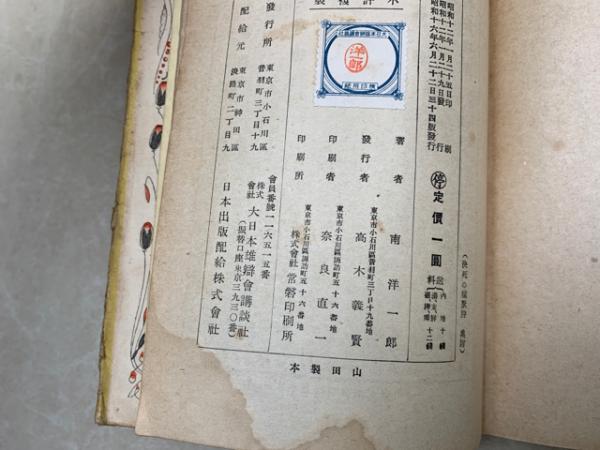 昭和十二年一月二十五日印刷
昭和十二年一月二十九日發行
昭和十六年六月二十二日三十四版發行
停 定價一圓
著者 南洋一郎
發行者 高木義賢
東京市小石川區音羽町三丁目十九番地
印刷者 奈良直一
東京市小石川區諏訪町五十六番地
印刷所 株式會社 常磐印刷所
東京市小石川區諏訪町五十六番地
大日本雄辯會講談社
洋一郎
發行所
東京市小石川區音羽町三丁目十九
會員番號一一六五一五番
株式會社 大日本雄辯會講談社
(振替口座東京三九三〇番)
配給元
東京市神田區淡路町二丁目九
日本出版配給株式會社
山田製本